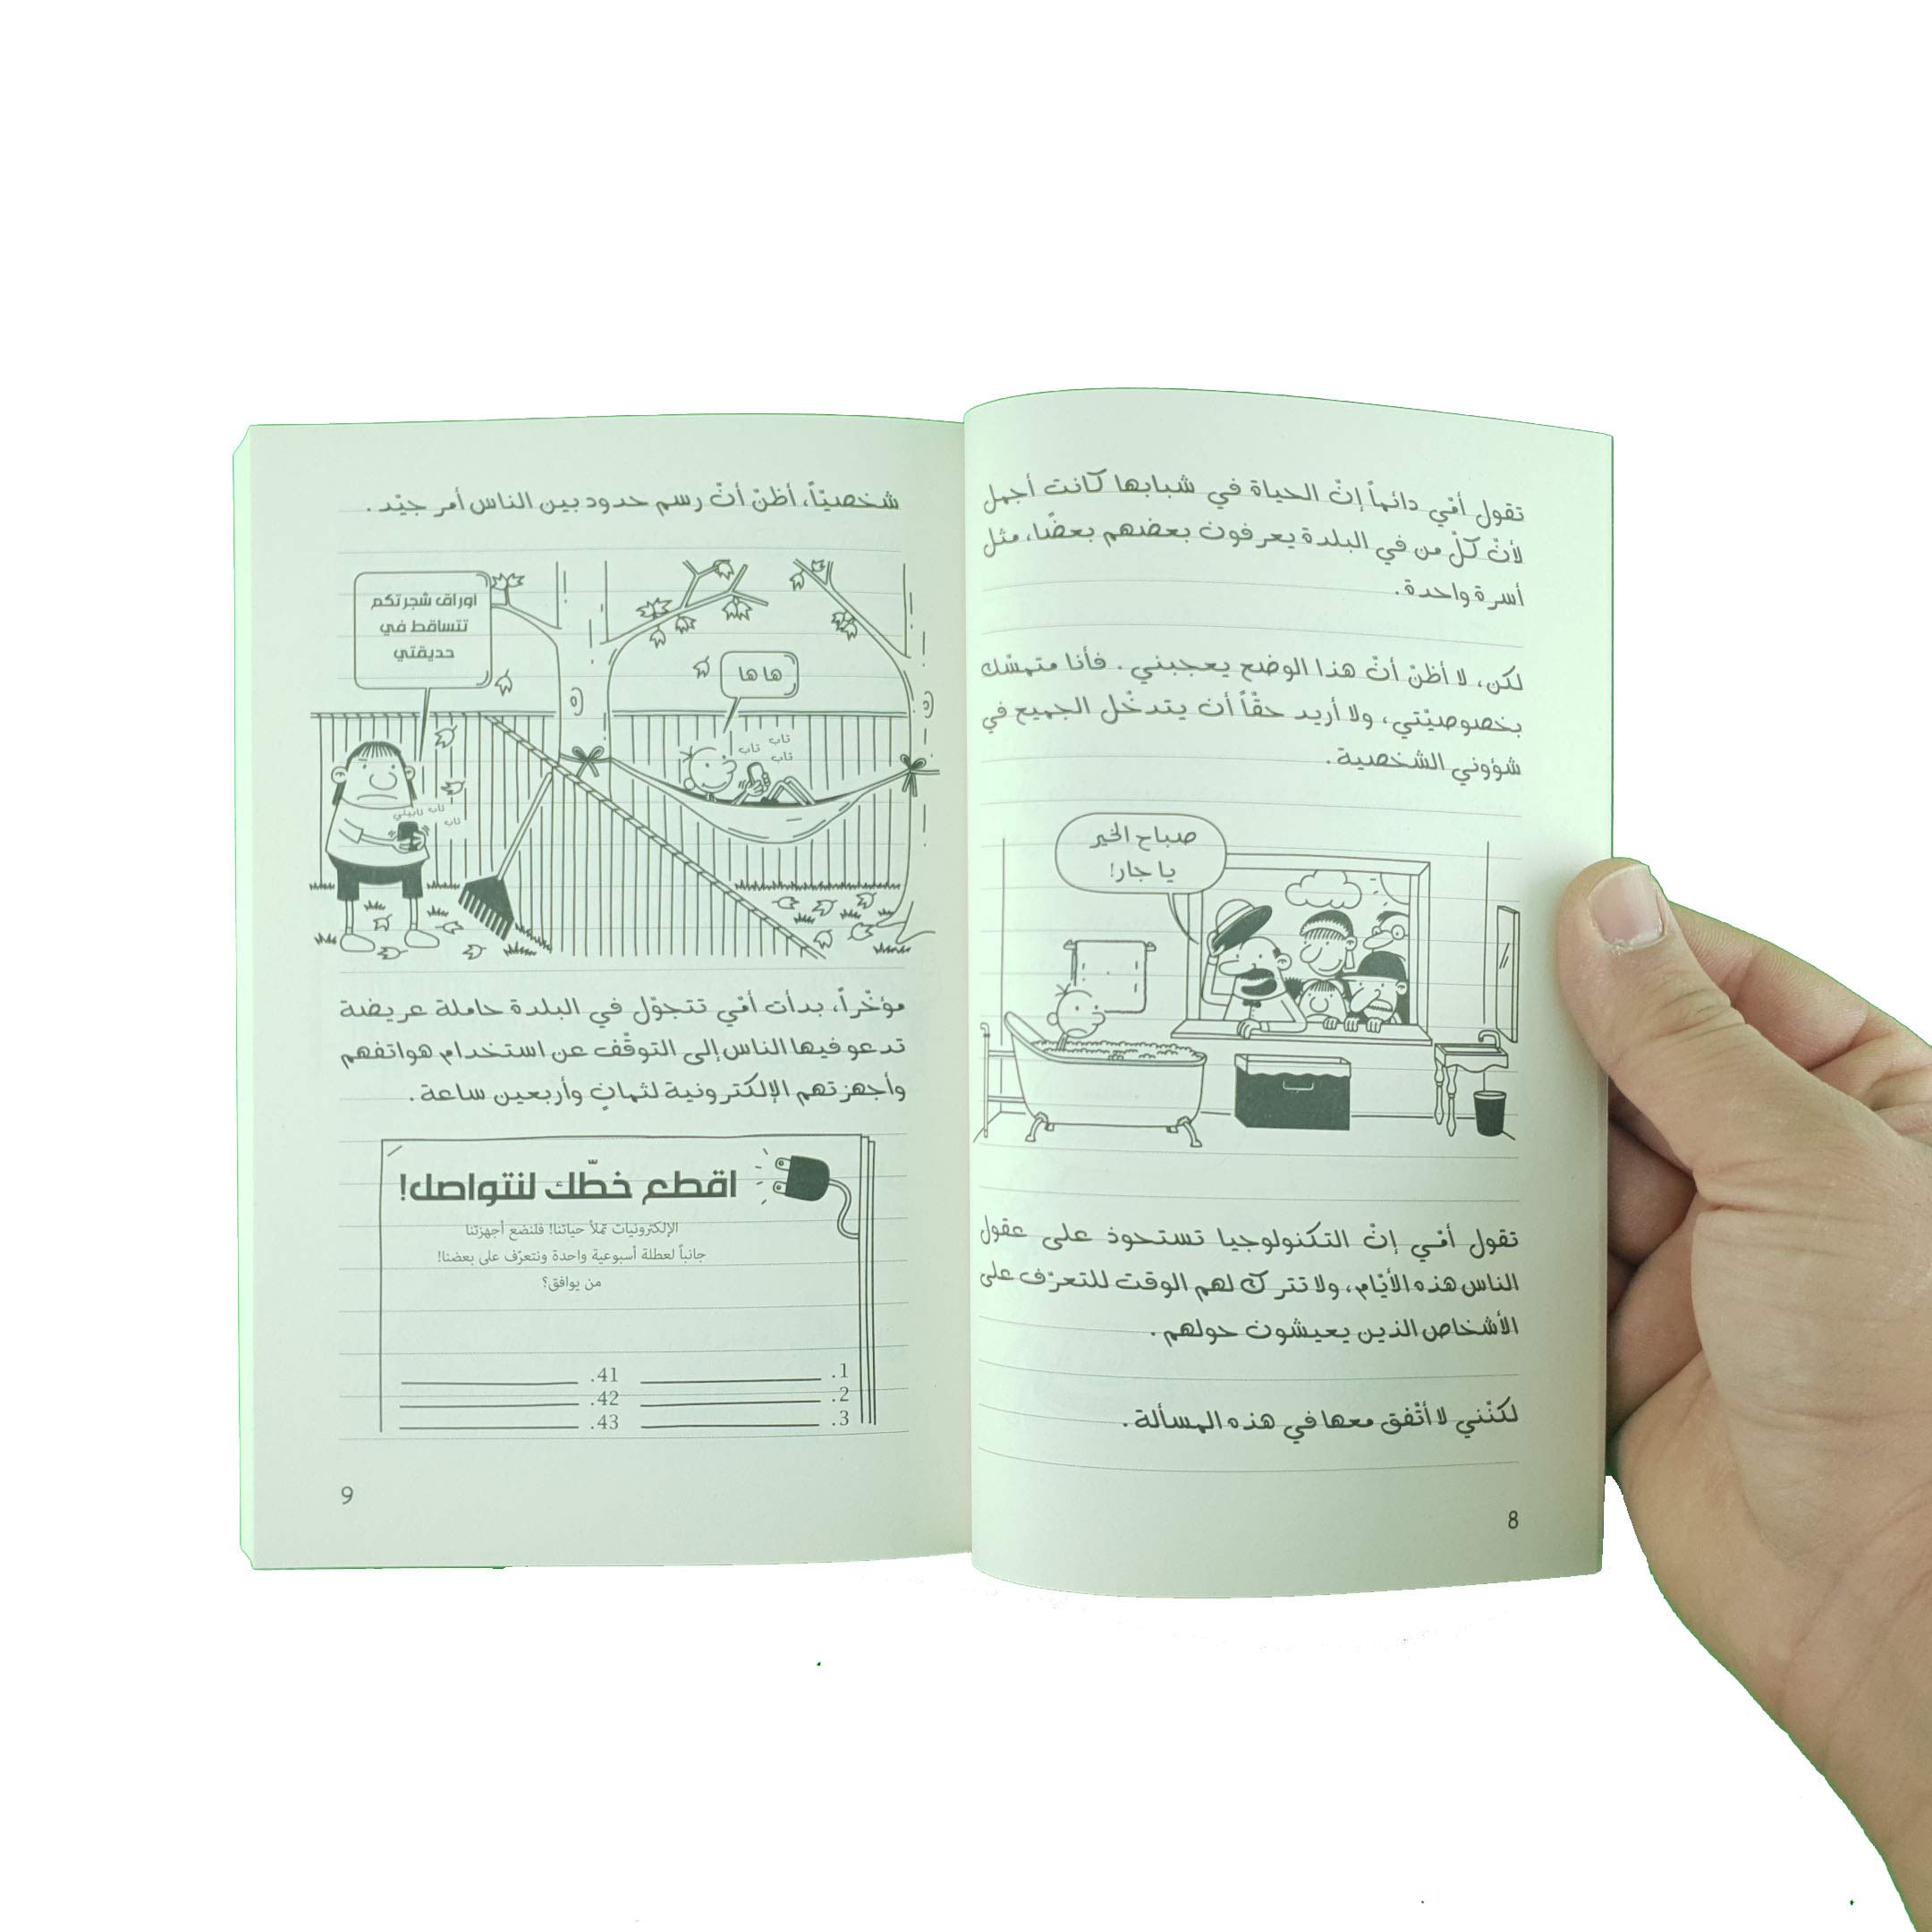 تقول أمّي دائماً إنّ الحياة في شبابها كانت أجمل
لأنّ كلّ من في البلدة يعرفون بعضهم بعضًا، مثل
أسرة واحدة.
لكن، لا أظنّ أنّ هذا الوضع يعجبني. فأنا متمسّك
بخصوصيّتي، ولا أريد حقّاً أن يتدخّل الجميع في
شؤوني الشخصية.
صباح الخير
يا جار!
تقول أمّي إنّ التكنولوجيا تستحوذ على عقول
الناس هذه الأيّام، ولا تترك لهم الوقت للتعرّف على
الأشخاص الذين يعيشون حولهم.
لكنّني لا أتّفق معها في هذه المسألة.
8
شخصيّاً، أظنّ أنّ رسم حدود بين الناس أمر جيّد.
اوراق شجرتكم
تتساقط في
حديقتي
ها ها
تاب
تاب تاب
تاب تابيتي
تاب
مؤخّراً، بدأت أمّي تتجوّل في البلدة حاملة عريضة
تدعو فيها الناس إلى التوقّف عن استخدام هواتفهم
وأجهزتهم الإلكترونية لثمانٍ وأربعين ساعة.
اقطع خطّك لنتواصل!
الإلكترونيات تملأ حياتنا! فلنضع أجهزتنا
جانباً لعطلة أسبوعية واحدة ونتعرّف على بعضنا!
من يوافق؟
1. 41.
2. 42.
3. 43.
9